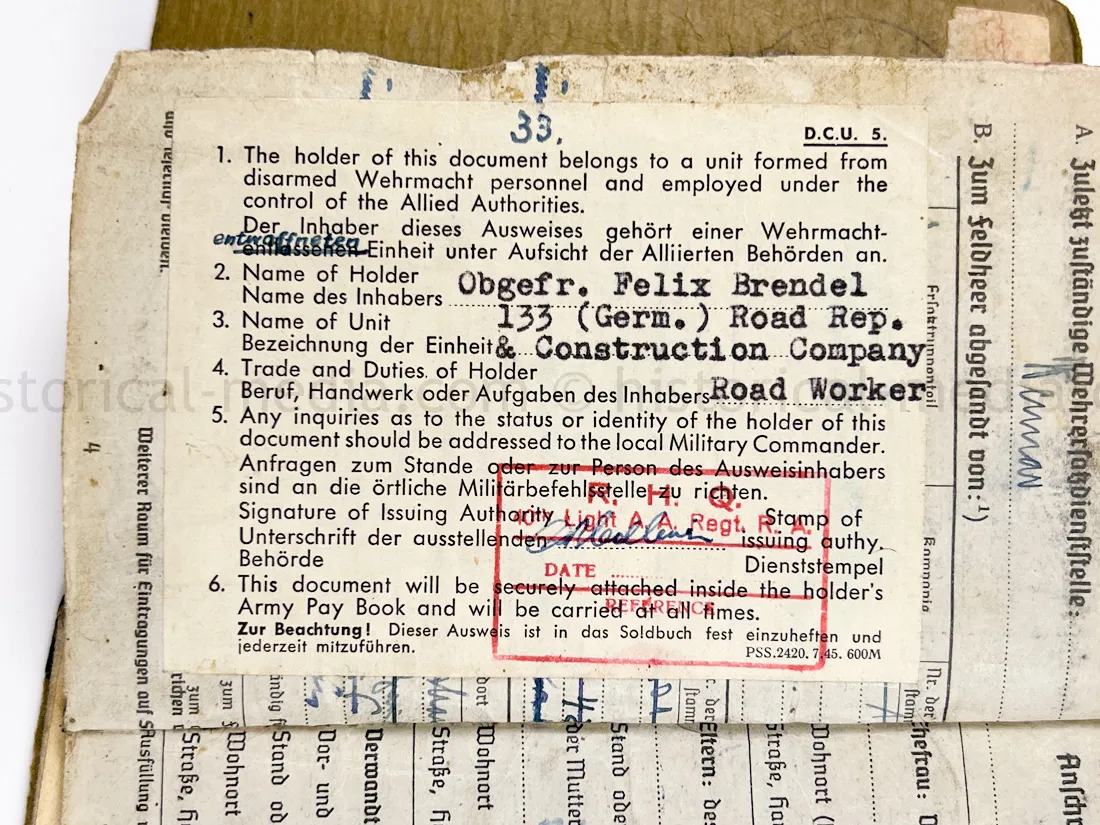 33.
D.C.U. 5.
1. The holder of this document belongs to a unit formed from
disarmed Wehrmacht personnel and employed under the
control of the Allied Authorities.
Der Inhaber dieses Ausweises gehört einer Wehrmacht-
entwaffneten
entlassenen Einheit unter Aufsicht der Alliierten Behörden an.
2. Name of Holder
Name des Inhabers Obgefr. Felix Brendel
3. Name of Unit 133 (Germ.) Road Rep.
Bezeichnung der Einheit & Construction Company
4. Trade and Duties of Holder
Beruf, Handwerk oder Aufgaben des Inhabers Road Worker
5. Any inquiries as to the status or identity of the holder of this
document should be addressed to the local Military Commander.
Anfragen zum Stande oder zur Person des Ausweisinhabers
sind an die örtliche Militärbefehlsstelle zu richten.
Signature of Issuing Authority Stamp of
Unterschrift der ausstellenden issuing authy.
Behörde Dienststempel
6. This document will be securely attached inside the holder's
Army Pay Book and will be carried at all times.
Zur Beachtung! Dieser Ausweis ist in das Soldbuch fest einzuheften und
jederzeit mitzuführen.
PSS.2420. 7.45. 600M
R. H. Q.
Light A.A. Regt. R. A.
DATE
REFERENCE
A. Zuletzt zuständige Wehrersatzdienststelle:
B. Zum Feldheer abgesandt von:¹)
4
Weiterer Raum für Eintragungen auf Ausfüllung
zum
zum
dort
der Eltern: des
Nr. der
Ehefrau:
Wohnort
Straße,
Stand
der Mutter
Wohnort
Straße,
Verwandt
Vor- und
Stand
Wohnort
Straße,
Anschr
historical-media.com © historical-media